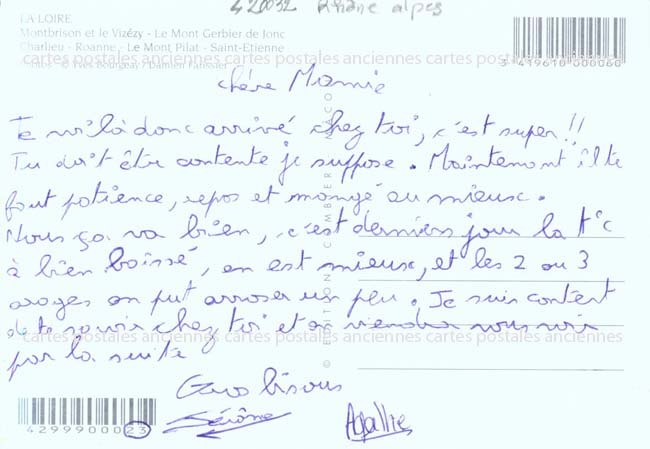 420032 Rhône alpes
LA LOIRE
Montbrison et le Vizézy - Le Mont Gerbier de Jonc
Charlieu - Roanne - Le Mont Pilat - Saint-Etienne
Photos © Yves Bourgeay / Damien Parissier
3 419610 000060
cartes postales anciennes cartes postales anciennes cartes postales anciennes
chère Mamie
Te v'là donc arrivé chez toi, c'est super !!
Tu doit être contente je suppose. Maintenant il te
faut patience, repos et mangé au mieux.
Nous ça va bien, c'est derniers jour la t°c
à bien baissé, on est mieux, et les 2 ou 3
orages on put arroser un peu. Je suis content
de te savoir chez toi et on viendra vous voir
cartes postales anciennes cartes postales anciennes cartes postales anciennes
par la suite
Gros bisous
Jérôme
42999000023